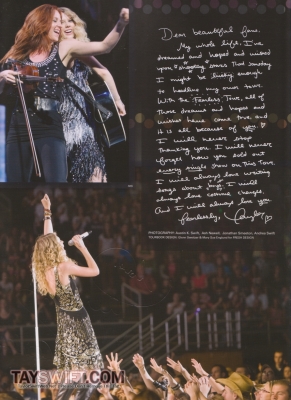 Dear beautiful fans,
My whole life, I've
dreamed and hoped and wished
upon shooting stars that someday
I might be lucky enough
to headline my own tour.
With the Fearless Tour, all of
those dreams and hopes and
wishes have come true, and
it is all because of you.
I will never stop
thanking you. I will never
forget how you sold out
every single show on this Tour.
I will always love writing
songs about boys. I will
always love costume changes.
And I will always love you.
Fearlessly,
PHOTOGRAPHY: Austin K. Swift, Jeth Newell, Jonathan Smeeton, Andrea Swift
TAYSWIFT.COM